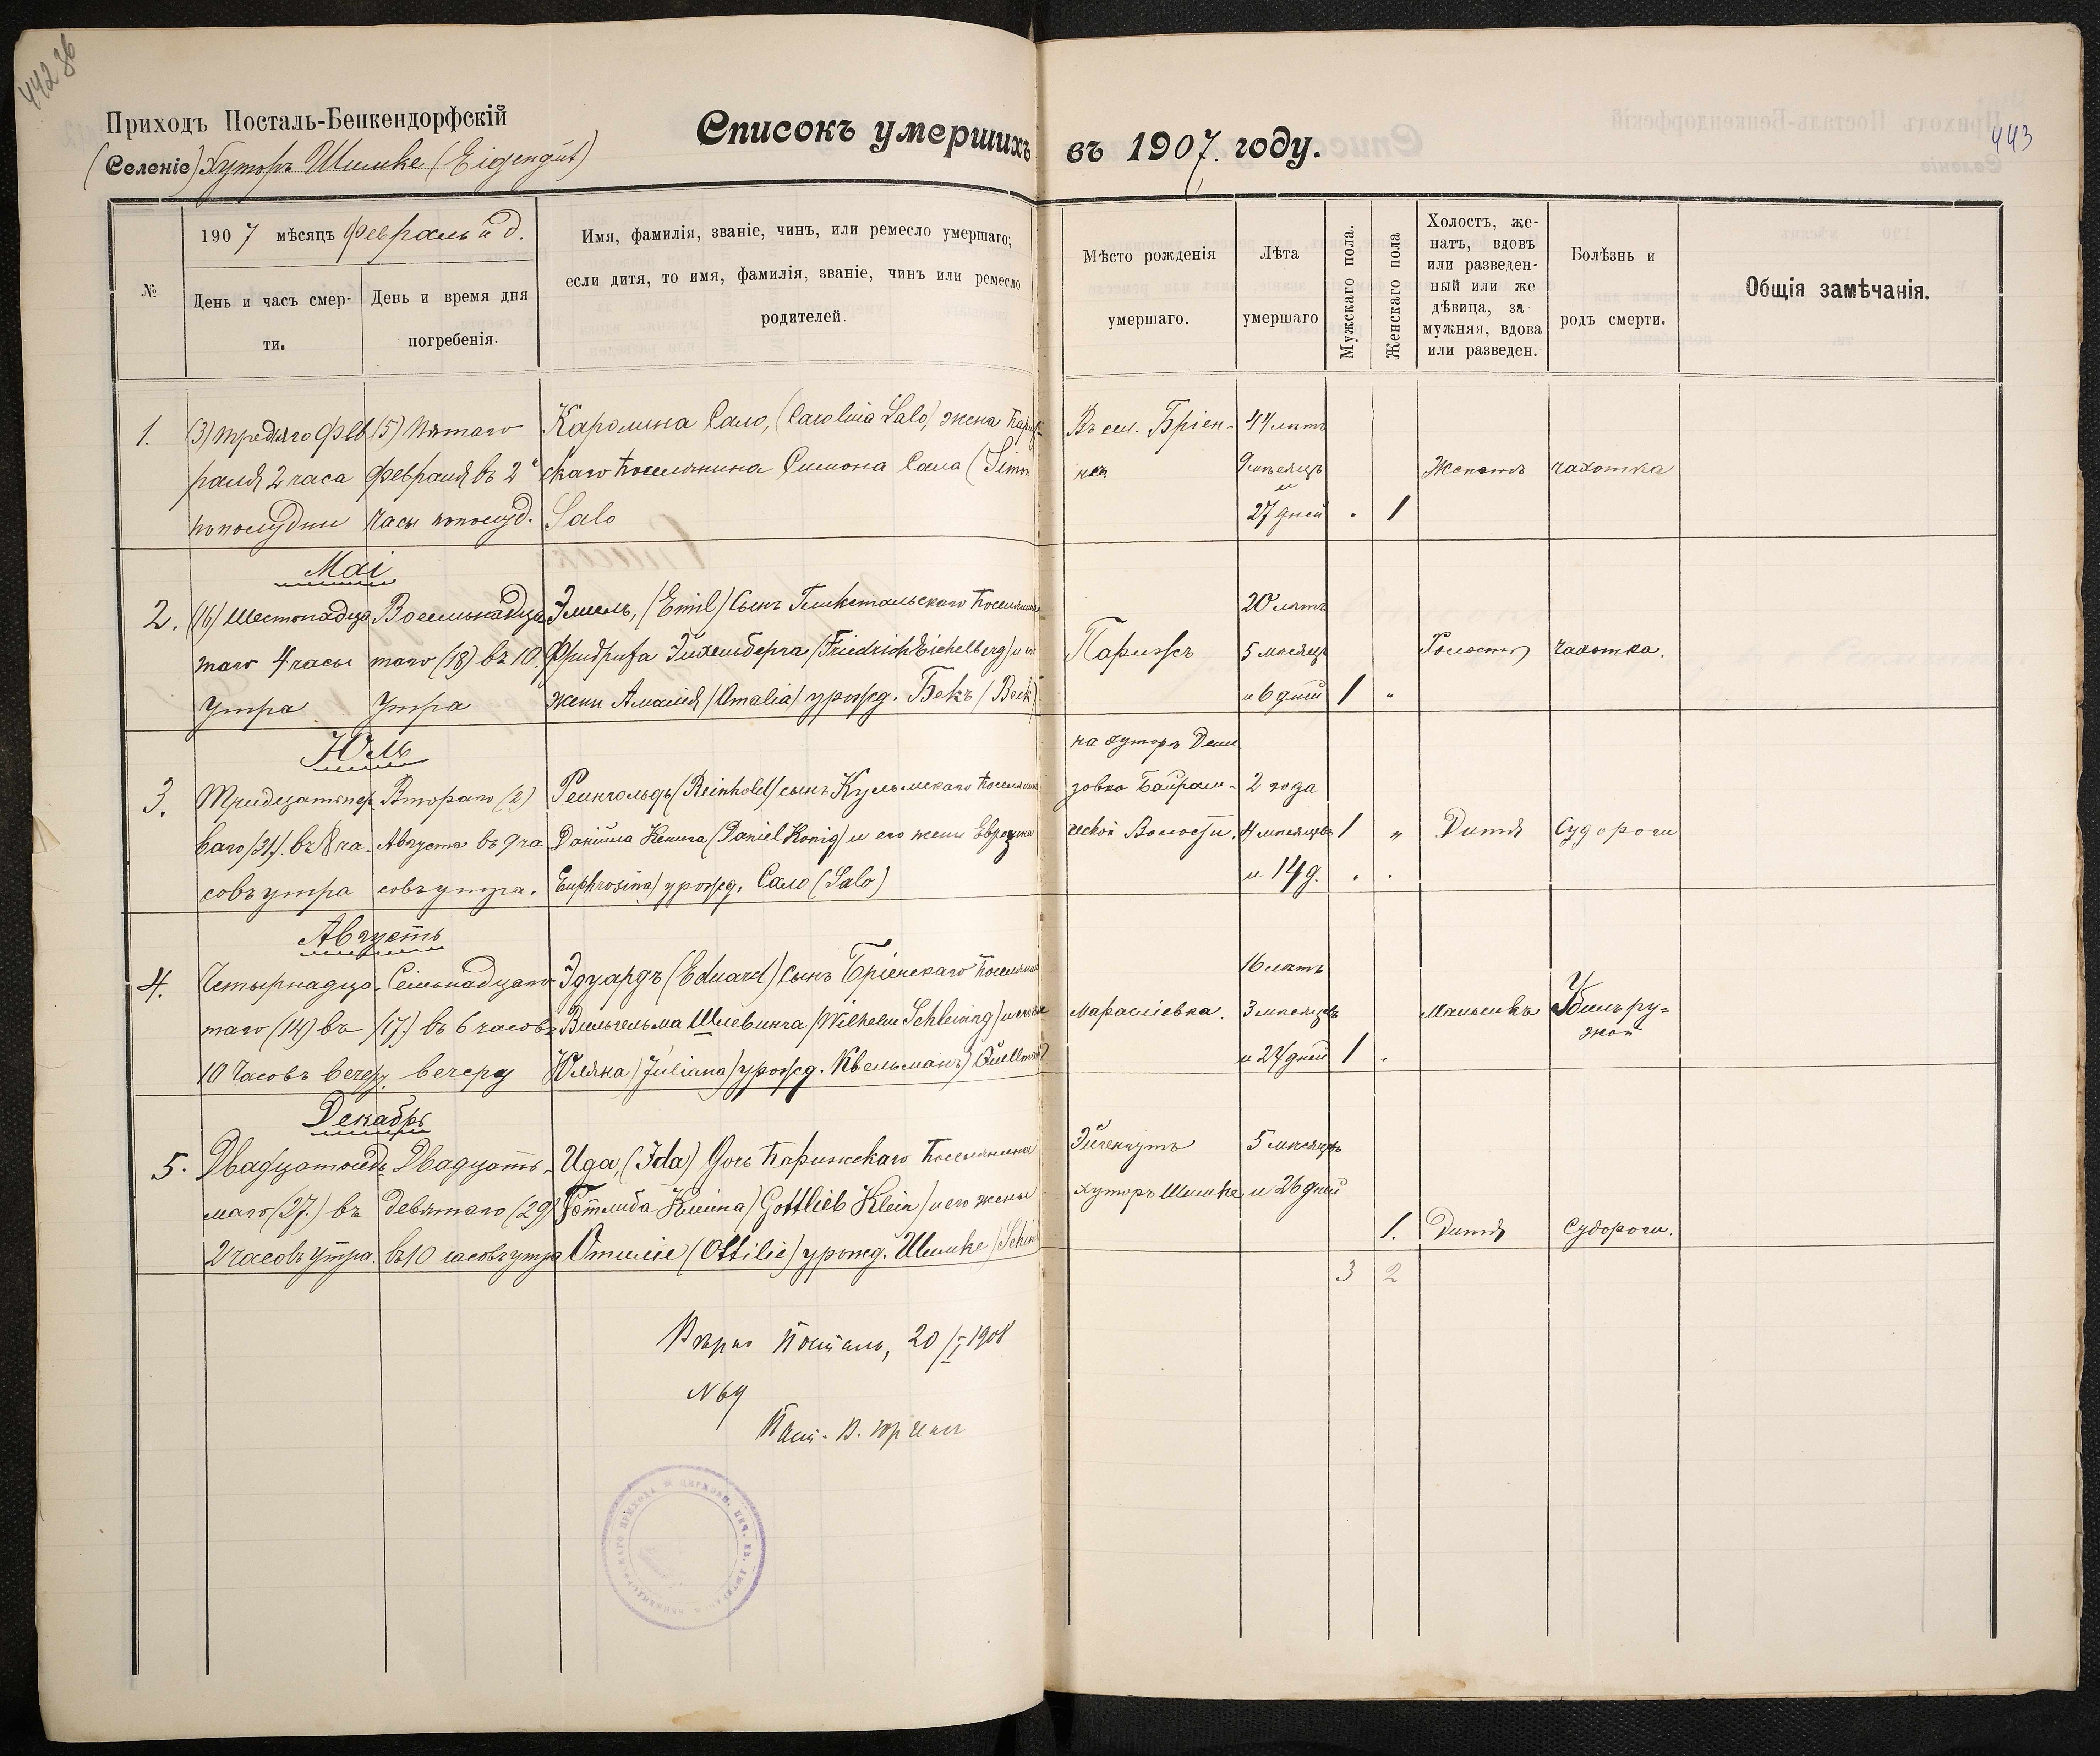 442 об
443
Приходъ Посталь-Бенкендорфскій
(Селеніе) Хуторъ Шимке (Eigengut)
Списокъ умершихъ въ 1907. году.
№
1907 мѣсяцъ Февраль и д.
День и часъ смерти.
День и время дня погребенія.
Имя, фамилія, званіе, чинъ, или ремесло умершаго;
если дитя, то имя, фамилія, званіе, чинъ или ремесло
родителей.
Мѣсто рожденія
умершаго.
Лѣта
умершаго
Мужскаго пола.
Женскаго пола
Холостъ, же-
натъ, вдовъ
или разведен-
ный или же
дѣвица, за
мужняя, вдова
или разведен.
Болѣзнь и
родъ смерти.
Общія замѣчанія.
1. (3) третьяго Фев (5) пятаго Каролина Сало, (Carolina Salo) жена Париж- Въ сел. Бріен- 44 лѣтъ
раля 2 часа Февраля въ 2 скаго поселянина Симона Сала (Simon не 9 мѣсяцъ Женатъ чахотка
пополудни часы пополуд. Salo и 27 дней " 1
Маі
2. (16) Шестнадца Восемьнадца Эмиль, (Emil) сынъ Гликстальскаго поселянина 20 лѣтъ
таго 4 часы таго (18) въ 10. Фридриха Эйхельберга (Friedrich Eichelberg) и его Парижъ 5 мѣсяцъ Холостъ чахотка.
утра утра жены Амалія (Amalia) урожд. Бекъ (Beck) и 6 дней 1 "
Юль
на хуторѣ Дени
3. Тридцатьпер- Втораго (2) Рейнгольдъ (Reinhold) сынъ Кульмскаго поселянина зовка Байрам- 2 года
ваго (31). въ 8 ча- Августа въ 9 ча Даніила Кенига (Daniel König) и его жены Еврозина ческой Волости. 4 мѣсяцевъ 1 " Дитя Судороги
совъ утра совъ утра. Euphrosina) урожд. Сало (Salo) и 14 д. " "
Августъ
4. Четырнадца- Семьнадцата Эдуардъ (Eduard) сынъ Бріенскаго поселянина 16 лѣтъ
таго (14) въ (17.) въ 6 часовъ Вильгельма Шлевинга (Wilhelm Schlewing) и его жены Марасліевка. 3 мѣсяцевъ Мальчикъ Убилъ ру-
10 Часовъ вечер. вечера Юляна (Juliana) урожд. Квельманъ) Quellmann) и 24 дней 1 . жой
Декабрь
5. Двадцатьседь- Двадцать- Ида, (Ida) дочь Парижскаго поселянина Эйгенгутъ 5 мѣсяцевъ
маго (27.) въ девятаго (29) Готлиба Клейна (Gottlieb Klein) и его жены хуторъ Шимке и 26 дней
2 часовъ утра. въ 10 часовъ утра Отиліе (Ottilie) урожд. Шимке (Schim 1. Дитя Судороги.
3 2
Вѣрно Посталь, 20/I 1908
N 69
Паст.